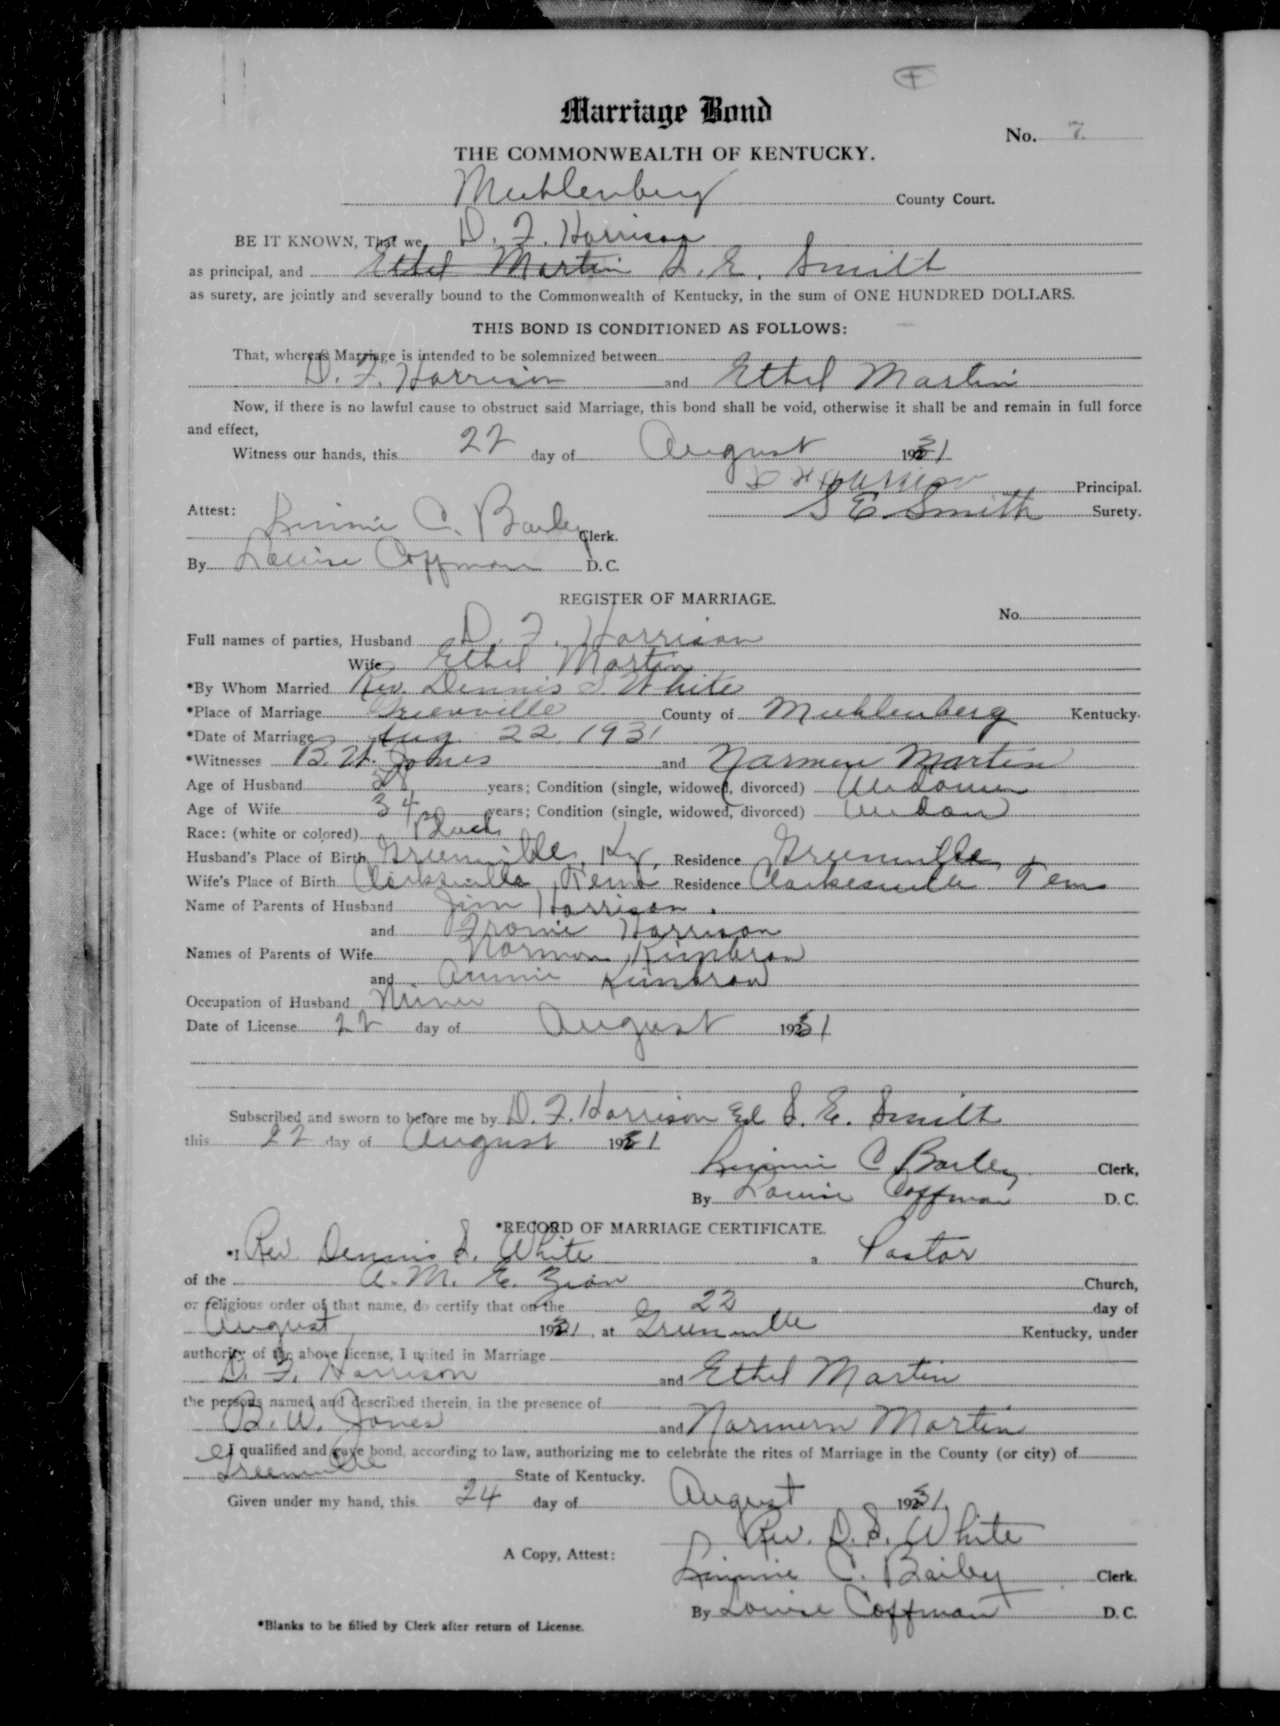 Marriage Bond
No. 7
THE COMMONWEALTH OF KENTUCKY.
Muhlenberg County Court.
BE IT KNOWN, That we, D. F. Harrison
as principal, and Ethel Martin S. E. Smith
as surety, are jointly and severally bound to the Commonwealth of Kentucky, in the sum of ONE HUNDRED DOLLARS.
THIS BOND IS CONDITIONED AS FOLLOWS:
That, whereas Marriage is intended to be solemnized between
D. F. Harrison and Ethel Martin
Now, if there is no lawful cause to obstruct said Marriage, this bond shall be void, otherwise it shall be and remain in full force
and effect,
Witness our hands, this 22 day of August 1931
D F Harrison Principal.
S E Smith Surety.
Attest: C. Bailey Clerk.
By Louise Coffman D. C.
REGISTER OF MARRIAGE.
No.
Full names of parties, Husband D. F. Harrison
Wife Ethel Martin
*By Whom Married Rev. Dennis S. White
*Place of Marriage Greenville County of Muhlenberg Kentucky.
*Date of Marriage Aug 22, 1931
*Witnesses B. W. Jones and Martin
Age of Husband years; Condition (single, widowed, divorced)
Age of Wife 34 years; Condition (single, widowed, divorced)
Race: (white or colored) Black
Husband's Place of Birth Greenville, Ky. Residence Greenville
Wife's Place of Birth Clarksville, Tenn Residence Clarkesville Tenn
Name of Parents of Husband Jim Harrison.
and Harrison
Names of Parents of Wife Norman
and Annie
Occupation of Husband Miner
Date of License 22 day of August 1931
Subscribed and sworn to before me by D. F. Harrison S. E. Smith
this 22 day of August 1931
C Bailey Clerk,
By Louise Coffman D. C.
*RECORD OF MARRIAGE CERTIFICATE.
*I Rev. Dennis S. White, Pastor
of the A. M. E. Zion Church,
or religious order of that name, do certify that on the 22 day of
August 1931, at Greenville Kentucky, under
authority of the above license, I united in Marriage
D. F. Harrison and Ethel Martin
the persons named and described therein, in the presence of
B. W. Jones and Martin
I qualified and gave bond, according to law, authorizing me to celebrate the rites of Marriage in the County (or city) of
Greenville State of Kentucky.
Given under my hand, this 24 day of August 1931
Rev. D. S. White
A Copy, Attest: C. Bailey Clerk.
By Louise Coffman D. C.
*Blanks to be filled by Clerk after return of License.